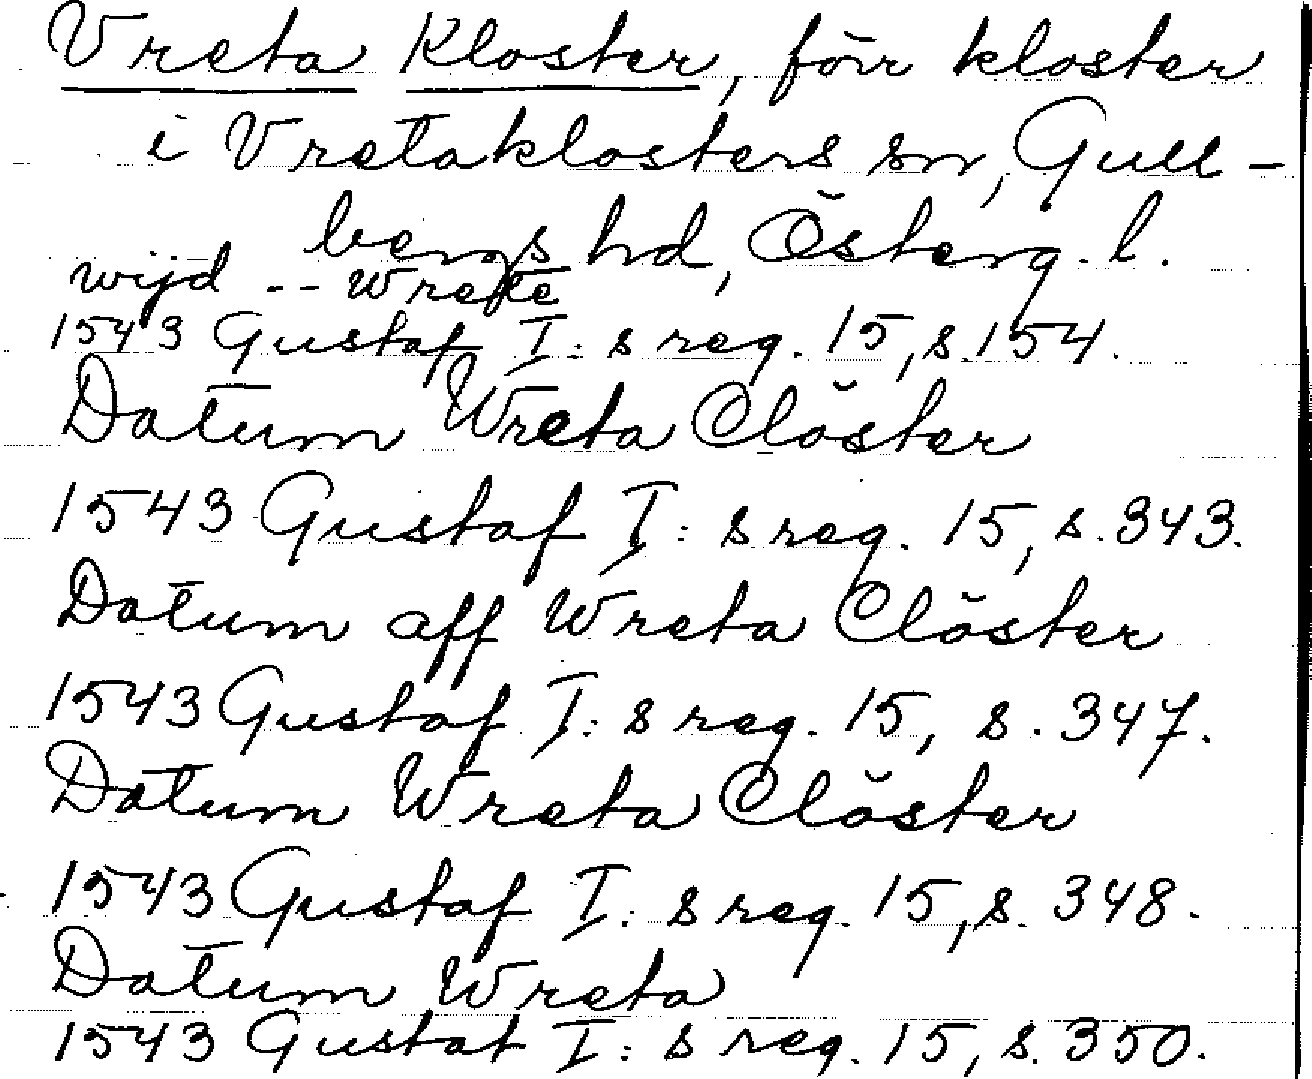 Vreta Kloster, förr kloster
i Vretaklosters sn, Gull-
bergs hd, Österg. l.
wijd -- Wrete
1543 Gustaf I: s reg. 15, s. 154.
Datum Wreta Clöster
1543 Gustaf I: s reg. 15, s. 343.
Datum aff Wreta Clöster
1543 Gustaf I: s reg. 15, s. 347.
Datum Wreta Clöster
1543 Gustaf I: s reg. 15, s. 348.
Datum Wreta
1543 Gustaf I: s reg. 15, s. 350.